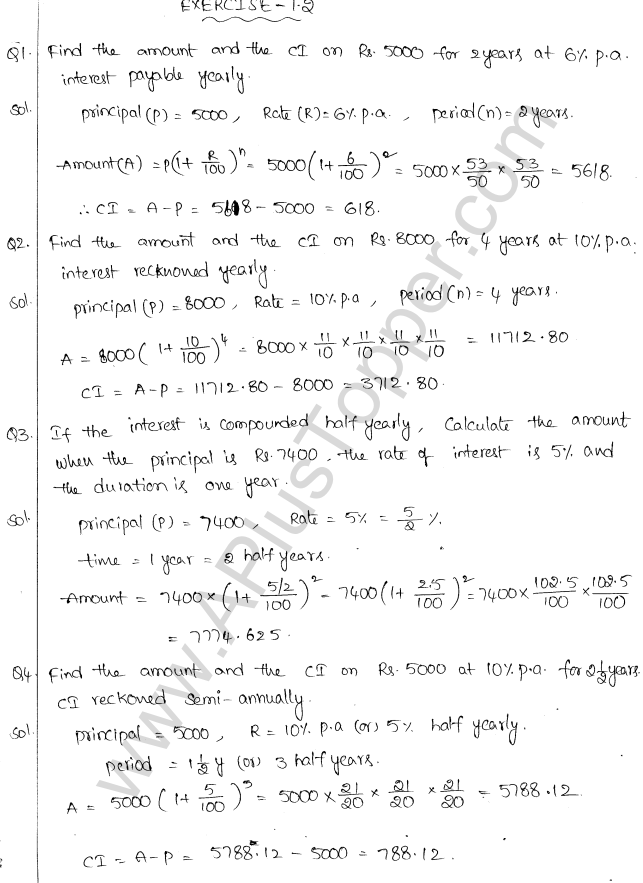 EXERCISE - 1.2
Q1. Find the amount and the CI on Rs. 5000 for 2 years at 6% p.a.
interest payable yearly.
Sol. principal (P) = 5000, Rate (R) = 6% p.a., period (n) = 2 years.
Amount (A) = P(1 + R/100)^n = 5000(1 + 6/100)^2 = 5000 × 53/50 × 53/50 = 5618.
∴ CI = A - P = 5618 - 5000 = 618.
Q2. Find the amount and the CI on Rs. 8000 for 4 years at 10% p.a.
interest recknoned yearly.
Sol. principal (P) = 8000, Rate = 10% p.a, period (n) = 4 years.
A = 8000(1 + 10/100)^4 = 8000 × 11/10 × 11/10 × 11/10 × 11/10 = 11712.80
CI = A - P = 11712.80 - 8000 = 3712.80.
Q3. If the interest is compounded half yearly, Calculate the amount
when the principal is Rs. 7400, the rate of interest is 5% and
the duration is one year.
Sol. principal (P) = 7400, Rate = 5% = 5/2 %.
time = 1 year = 2 half years.
Amount = 7400 × (1 + 5/2/100)^2 = 7400(1 + 2.5/100)^2 = 7400 × 102.5/100 × 102.5/100
= 7774.625.
Q4. Find the amount and the CI on Rs. 5000 at 10% p.a. for 2 1/2 years.
CI reckoned semi-annually.
Sol. principal = 5000, R = 10% p.a (or) 5% half yearly.
period = 1 1/2 y (or) 3 half years.
A = 5000(1 + 5/100)^3 = 5000 × 21/20 × 21/20 × 21/20 = 5788.12
CI = A - P = 5788.12 - 5000 = 788.12.
www.APlusTopper.com